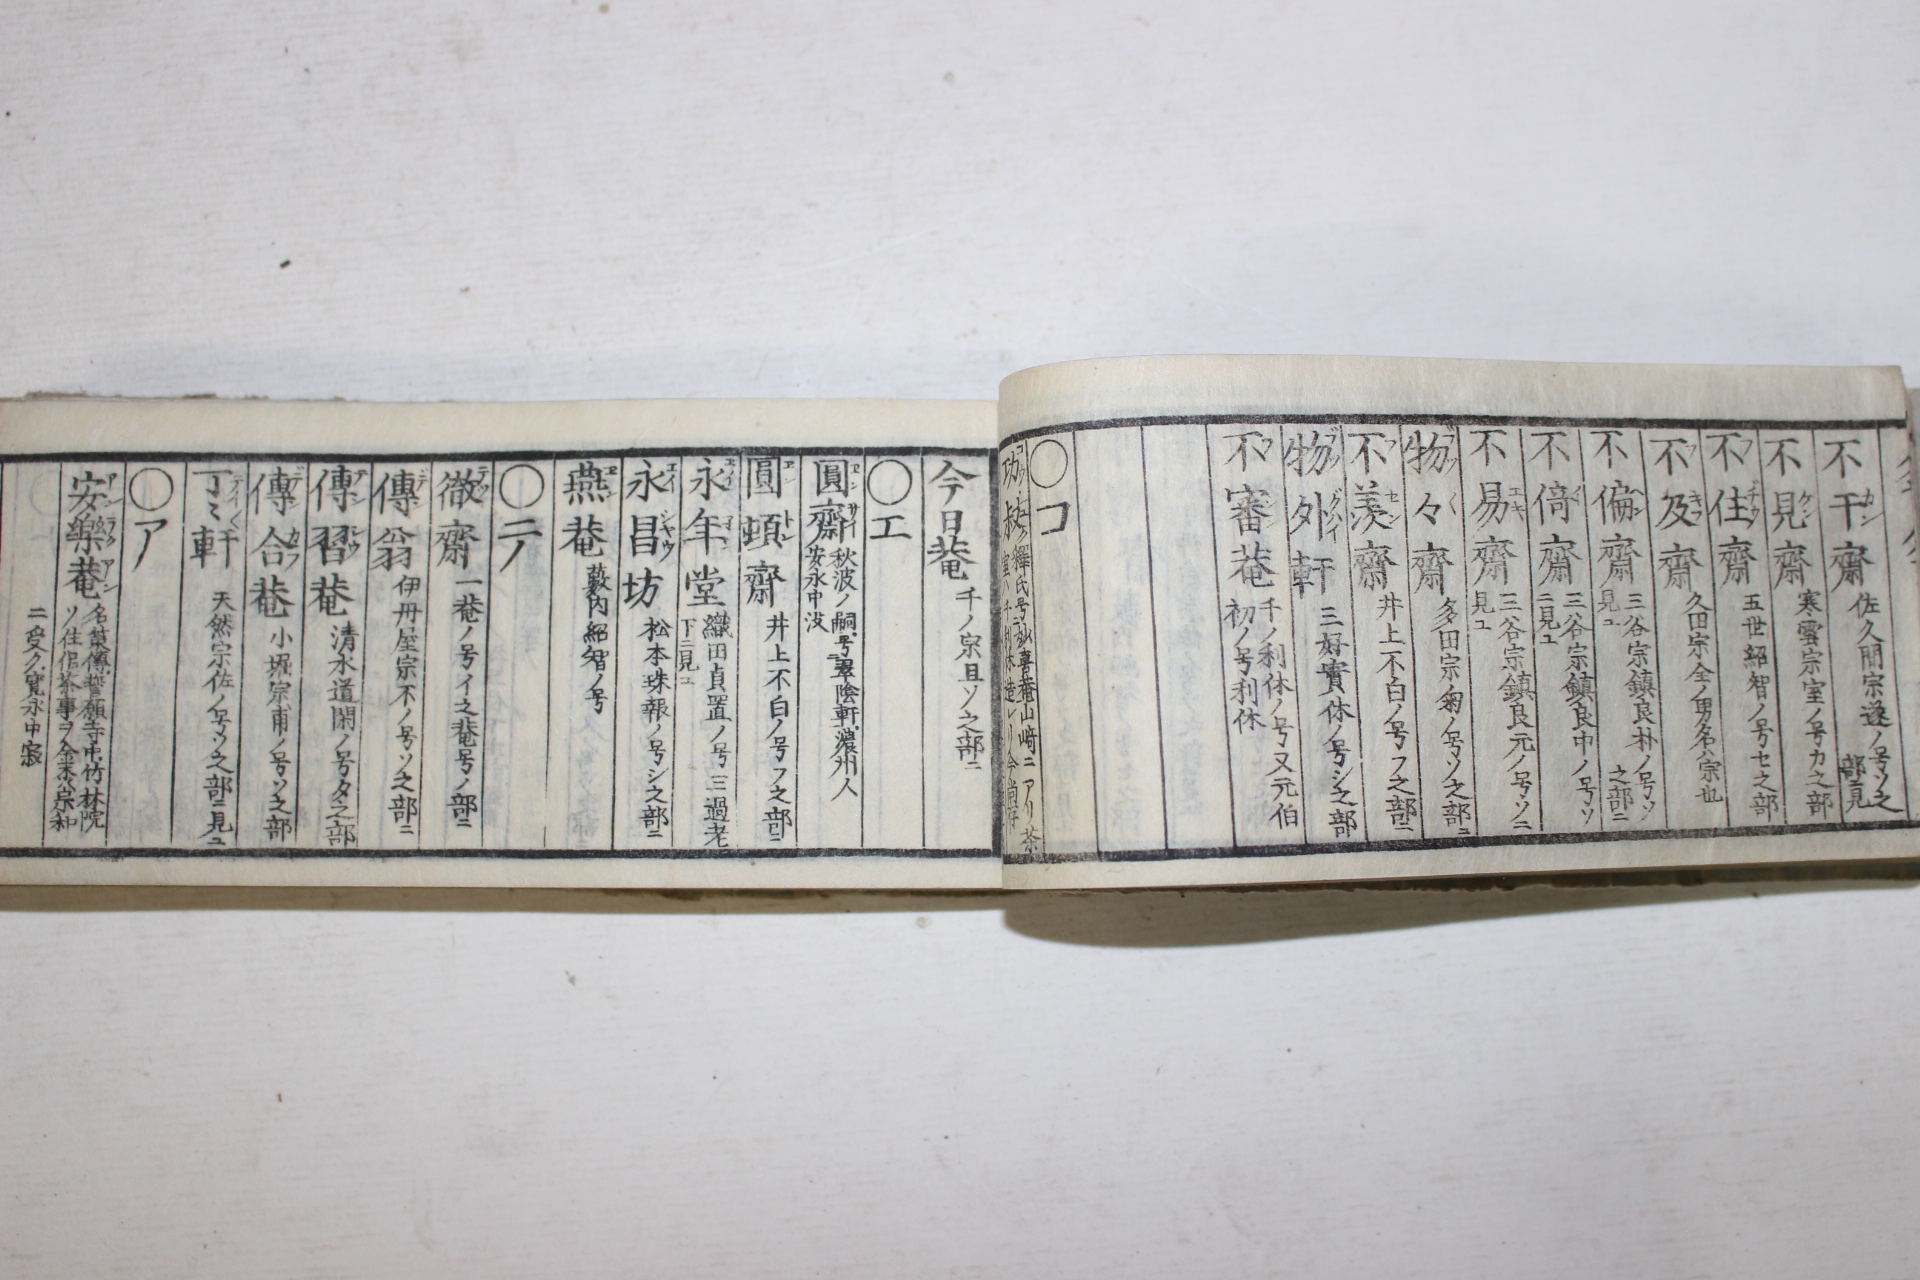 不干齋 佐久間宗遂ノ号ソ之部見
不見齋 寒雲宗室ノ号カ之部
不住齋 五世紹智ノ号セ之部
不及齋 久田宗全ノ男名宗也
不偏齋 三谷宗鎮良朴ノ号ソノ之部ニ見ユ
不倚齋 三谷宗鎮良中ノ号ソニ見ユ
不易齋 三谷宗鎮良元ノ号ソニ見ユ
物々齋 多田宗菊ノ号ソノ之部ニ
不羨齋 井上不白ノ号フ之部ニ
物外軒 三好實休ノ号シ之部
不審菴 千ノ利休ノ号又元伯初ノ号利休
〇コ
功叔 釋氏号秘喜菴山崎ニアリ茶室ハ千利休造レリ今尚存
今日菴 千ノ宗旦ソ之部ニ
〇エ
圓齋 秋波ノ嗣号翠陰軒濃州人安永中没
圓頓齋 井上不白ノ号フ之部ニ
永年堂 織田貞置ノ号三過老下ニ見ユ
永昌坊 松本珠報ノ号シ之部ニ
燕菴 藪内紹智ノ号
〇テ
徹齋 一菴ノ号イ之菴号ノ部ニ
傳翁 伊丹屋宗不ノ号ソ之部ニ
傳習菴 清水道閑ノ号タ之部
傳合菴 小堀宗甫ノ号ソ之部
丁々軒 天然宗佐ノ号ソ之部ニ見ユ
〇ア
安樂菴 名策傳誓願寺中竹林院ソ住作茶事ヲ金森宗和ニ受ク寛永中寂